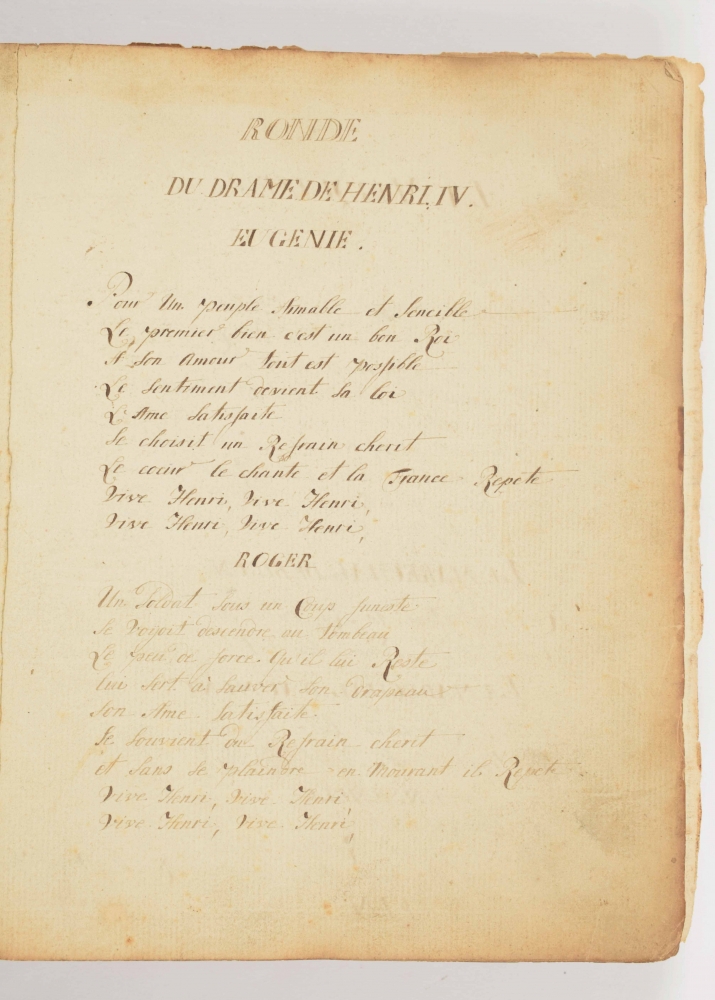 RONDE
DU DRAME DE HENRI, IV.
EUGENIE.
Pour Un peuple Aimable et Sencille
Le premier bien c'est un bon Roi
A Son Amour tout est possible
Le Sentiment devient Sa loi
L'Ame Satisfaite
Se choisit un Refrain cherit
Le coeur le chante et la France Repete
Vive Henri, Vive Henri,
Vive Henri, Vive Henri,
ROGER
Un Soldat Sous un Coup funeste
Se voyoit descendre au tombeau
Le peu de force Qu'il lui Reste
lui Sert a Sauver Son Drapeau
Son Ame Satisfaite
Se Souvient du Refrain cherit
et Sans Se plaindre en Mourant il Repete
Vive Henri, Vive Henri,
Vive Henri, Vive Henri,